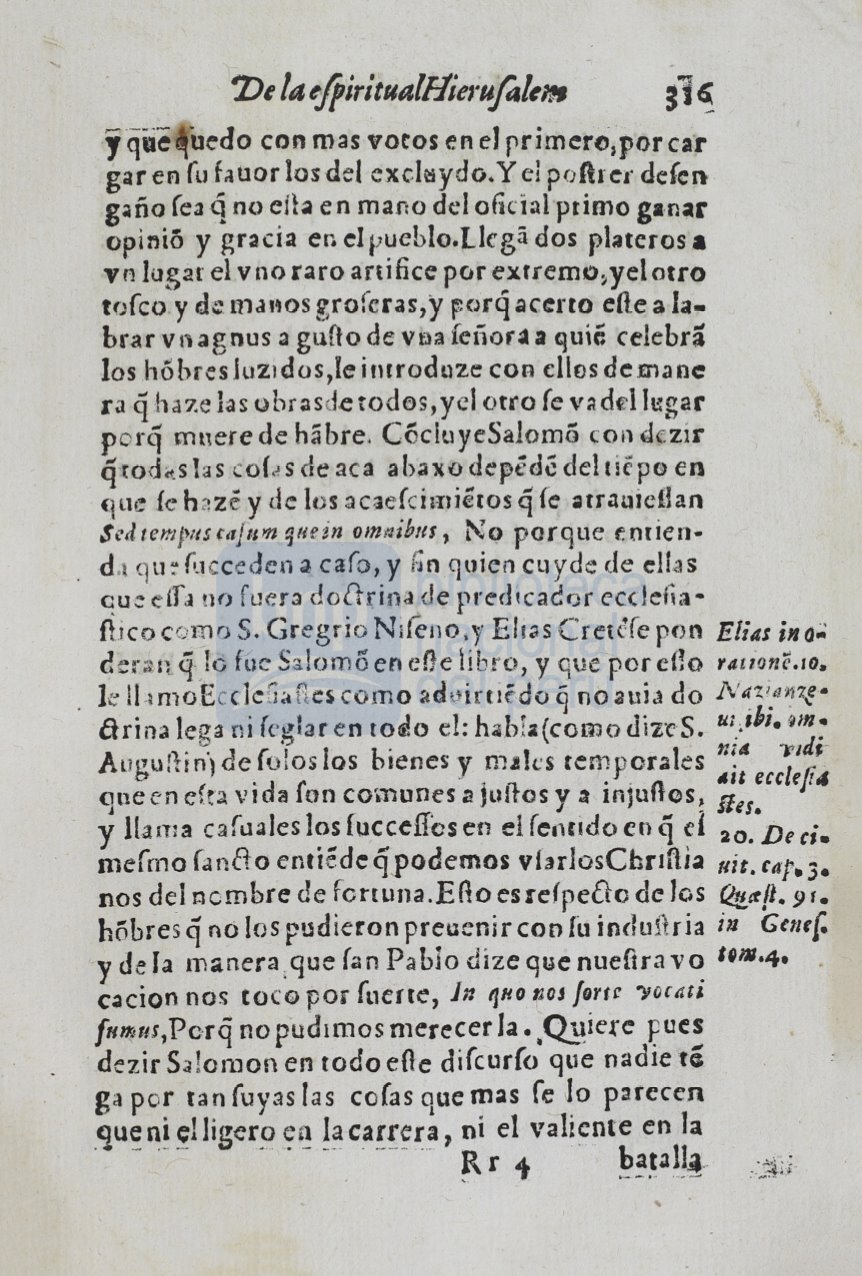 De la eſpiritual Hieruſalem 316
y que quedo con mas votos en el primero, por car
gar en ſu fauor los del excluydo. Y el poſtrer deſen
gaño ſea q̃ no eſta en mano del oficial primo ganar
opiniõ y gracia en el pueblo. Llegã dos plateros a
vn lugar el vno raro artifice por extremo, y el otro
toſco y de manos groſeras, y porq̃ acerto eſte a la-
brar vn agnus a guſto de vna ſeñora a quiẽ celebrã
los hõbres luzidos, le introduze con ellos de mane
ra q̃ haze las obras de todos, y el otro ſe va del lugar
porq̃ muere de hãbre. Cõcluye Salomõ con dezir
q̃ todas las coſas de aca abaxo depẽdẽ del tiẽpo en
que ſe hazẽ y de los acaeſcimiẽtos q̃ ſe atrauieſſan
Sed tempus caſum que in omnibus, No porque entien-
da que ſucceden a caſo, y ſin quien cuyde de ellas
que eſſa no fuera doctrina de predicador eccleſia-
ſtico como S. Gregrio Niſeno, y Elias Cretẽſe pon
deran q̃ lo fue Salomõ en eſte libro, y que por eſto
le llamo Eccleſiaſtes como aduirtiẽdo q̃ no auia do
ctrina lega ni ſeglar en todo el: habla (como dize S.
Auguſtin) de ſolos los bienes y males temporales
que en eſta vida ſon comunes a juſtos y a injuſtos,
y llama caſuales los ſucceſſos en el ſentido en q̃ el
meſmo ſancto entiẽde q̃ podemos vſar los Chriſtia
nos del nombre de fortuna. Eſto es reſpecto de los
hõbres q̃ no los pudieron preuenir con ſu induſtria
y de la manera que ſan Pablo dize que nueſtra vo
cacion nos toco por ſuerte, In quo nos ſorte vocati
ſumus, Porq̃ no pudimos merecer la. Quiere pues
dezir Salomon en todo eſte diſcurſo que nadie tẽ
ga por tan ſuyas las coſas que mas ſe lo parecen
que ni el ligero en la carrera, ni el valiente en la
Rr 4 batalla
Elias in o-
rationẽ. 10.
Nazianze-
ui. ibi. om-
nia vidi
ait eccleſia
ſtes.
20. De ci-
uit. cap. 3.
Quæſt. 91.
in Geneſ.
tom. 4.
biblioteca
nacional